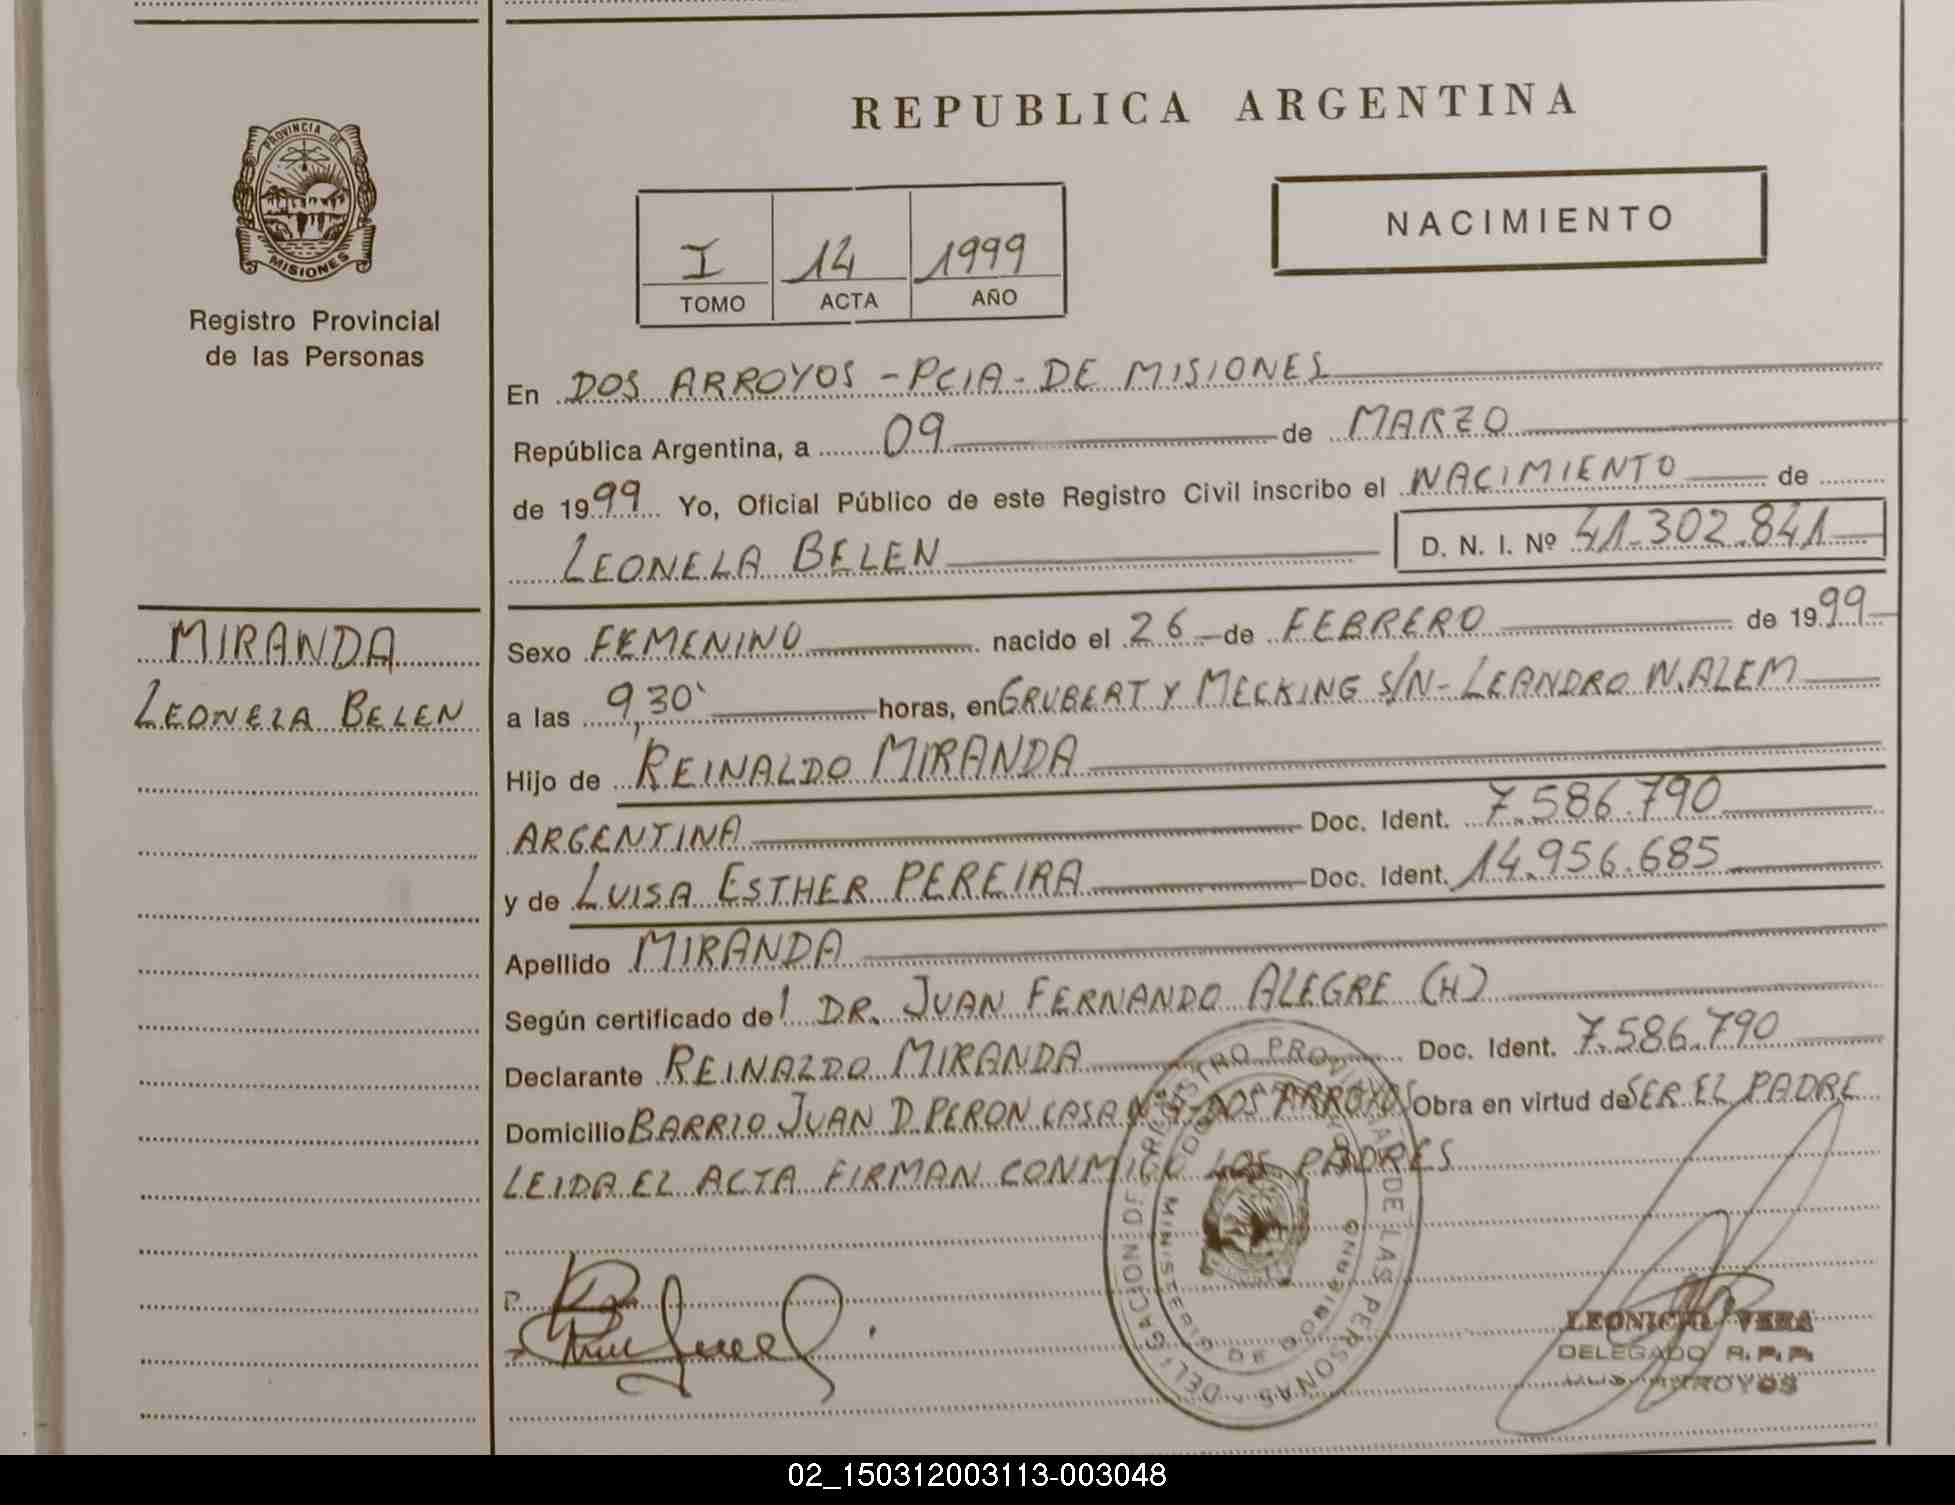 REPUBLICA ARGENTINA
PROVINCIA DE
MISIONES
Registro Provincial
de las Personas
I 14 1999
TOMO ACTA AÑO
NACIMIENTO
En DOS ARROYOS - PCIA - DE MISIONES
República Argentina, a 09 de MARZO
de 1999 Yo, Oficial Público de este Registro Civil inscribo el NACIMIENTO de
LEONELA BELEN D. N. I. Nº 41.302.841
MIRANDA
LEONELA BELEN
Sexo FEMENINO nacido el 26 de FEBRERO de 1999
a las 9,30 horas, en GRUBERT Y MECKING S/N - LEANDRO N. ALEM
Hijo de REINALDO MIRANDA
ARGENTINA Doc. Ident. 7.586.790
y de LUISA ESTHER PEREIRA Doc. Ident. 14.956.685
Apellido MIRANDA
Según certificado del DR. JUAN FERNANDO ALEGRE (H)
Declarante REINALDO MIRANDA Doc. Ident. 7.586.790
Domicilio BARRIO JUAN D. PERON CASA DOS ARROYOS Obra en virtud de SER EL PADRE
LEIDA EL ACTA FIRMAN CONMIGO LOS PADRES
DELEGACION DE REGISTRO PROVINCIAL DE LAS PERSONAS
MINISTERIO DE GOBIERNO
LEONICIO VERA
DELEGADO R. P. P.
DOS ARROYOS
02_150312003113-003048